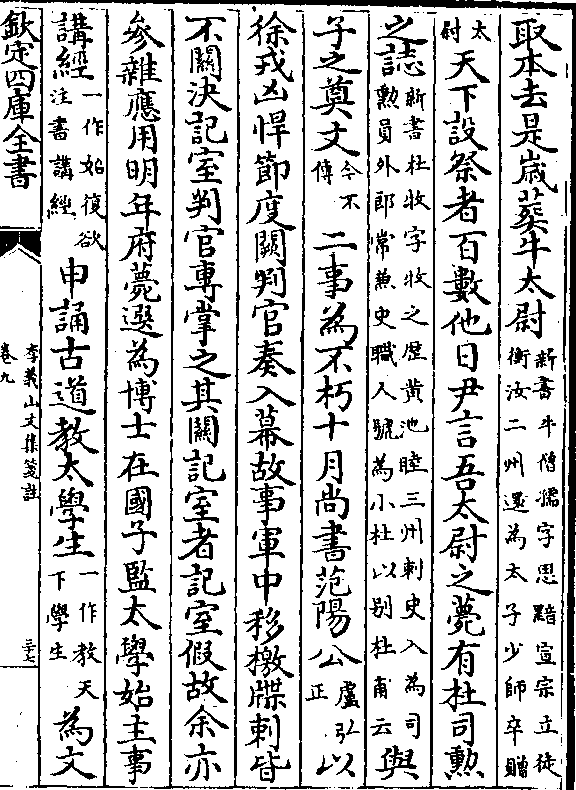 取本去是歲葬牛太尉新書牛僧孺字思黯宣宗立徙衡汝二州還為太子少師卒贈
太尉天下設祭者百數他日尹言吾太尉之薨有杜司勲
之誌新書杜牧字牧之歴黄池睦三州刺史入為司勲員外郎常兼史職人號為小杜以别杜甫云與
子之奠文今不傳二事為不朽十月尚書范陽公盧弘正以
徐戎凶悍節度闕判官奏入幕故事軍中移檄牒刺皆
不闗決記室判官專掌之其闗記室者記室假故余亦
參雜應用明年府薨選為博士在國子監太學始主事
講經一作始復欲注書講經申誦古道教太學生一作教天下學生為文
欽定四庫全書
李義山文集箋註
卷九
三十七